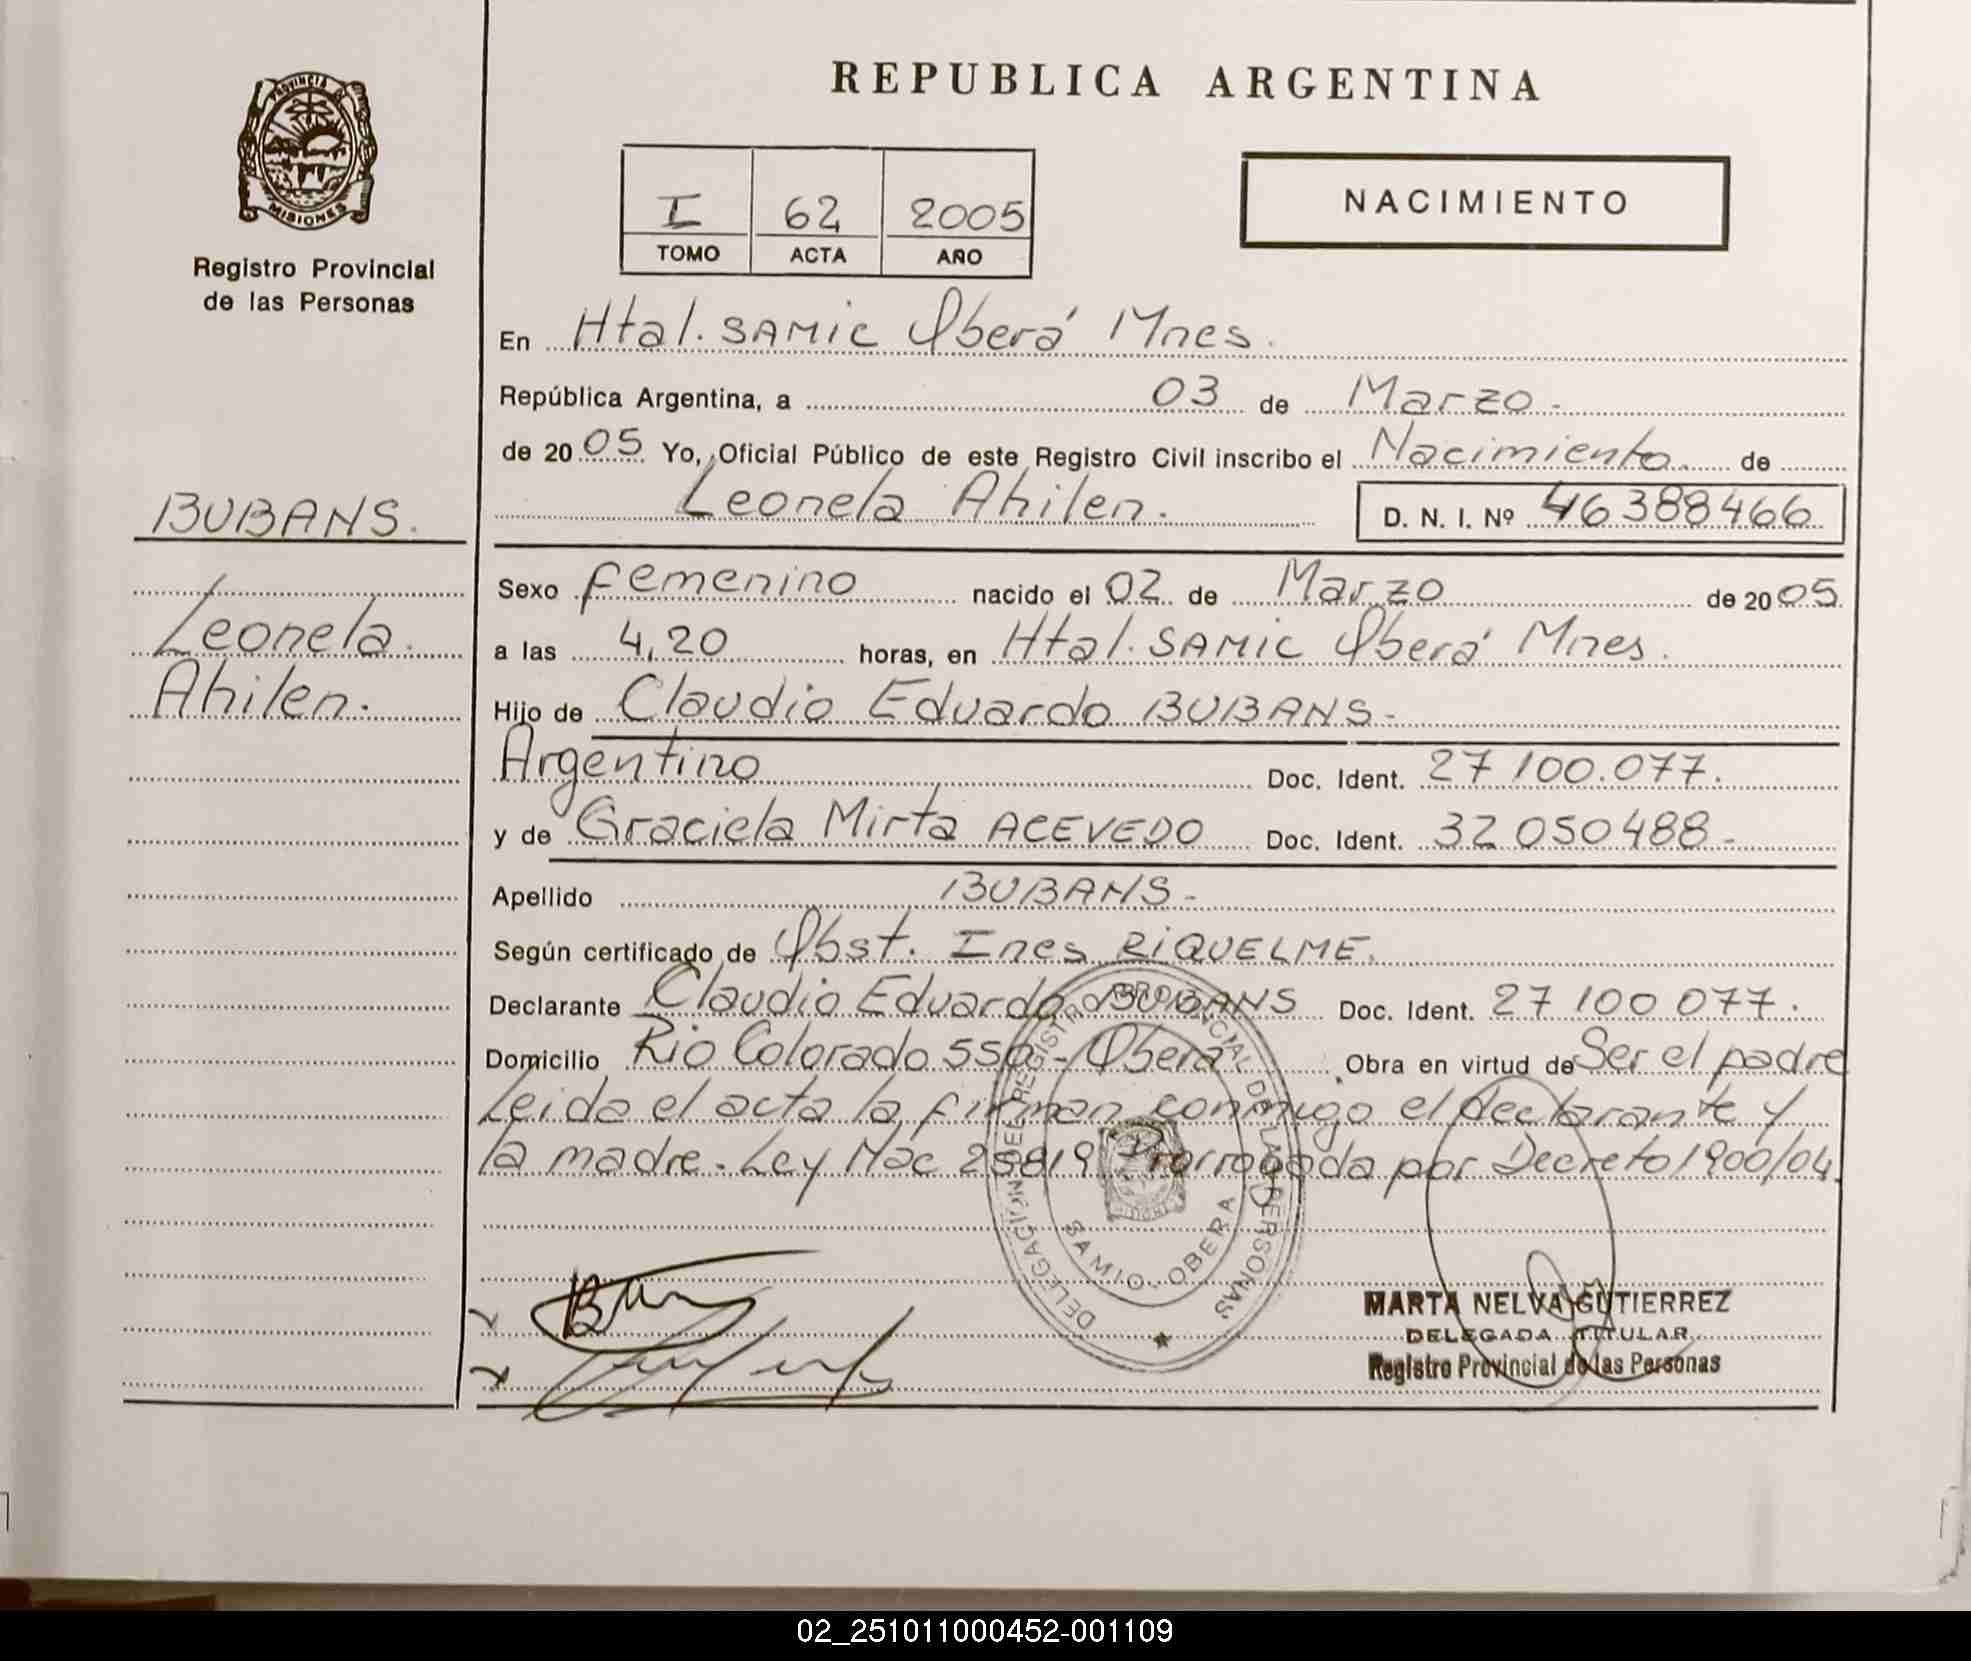 PROVINCIA DE
MISIONES
Registro Provincial
de las Personas
REPUBLICA ARGENTINA
I 62 2005
TOMO ACTA AÑO
NACIMIENTO
En Htal. SAMIC Oberá Mnes.
República Argentina, a 03 de Marzo.
de 2005 Yo, Oficial Público de este Registro Civil inscribo el Nacimiento de
Leonela Ahilen. D. N. I. Nº 46388466
BUBANS.
Leonela.
Ahilen.
Sexo femenino nacido el 02 de Marzo de 2005
a las 4,20 horas, en Htal. SAMIC Oberá Mnes.
Hijo de Claudio Eduardo BUBANS-
Argentino Doc. Ident. 27100.077.
y de Graciela Mirta ACEVEDO Doc. Ident. 32050488-
Apellido BUBANS-
Según certificado de Obst. Ines RIQUELME.
Declarante Claudio Eduardo BUBANS Doc. Ident. 27100077.
Domicilio Rio Colorado 550 - Oberá Obra en virtud de Ser el padre
Leida el acta la firman conmigo el declarante y
la madre. Ley Nac 25819 Prorrogada por Decreto 1900/04.
DELEGACION DEL REGISTRO PROVINCIAL DE LAS PERSONAS
SAMIC - OBERA
MARTA NELVA GUTIERREZ
DELEGADA TITULAR
Registro Provincial de las Personas
02_251011000452-001109